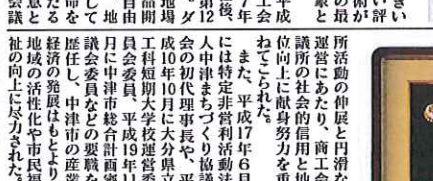 きい
い評
術が
の最
象と
平成
工会
7年
後、
第12
。ダ
地場
品開
自由
地
して
命を
たる
意と
会議
所活動の伸展と円滑な
運営にあたり、商工会
議所の社会的信用と地
位向上に献身努力を重
ねてこられた。
また、平成17年6月
には特定非営利活動法
人中津まちづくり協議
会の初代理事長や、平
成10年10月に大分県立
工科短期大学校運営委
員会委員、平成19年11
月に中津市総合計画審
議会委員などの要職を
歴任し、中津市の産業
経済の発展はもとより
地域の活性化や市民福
祉の向上に尽力された。